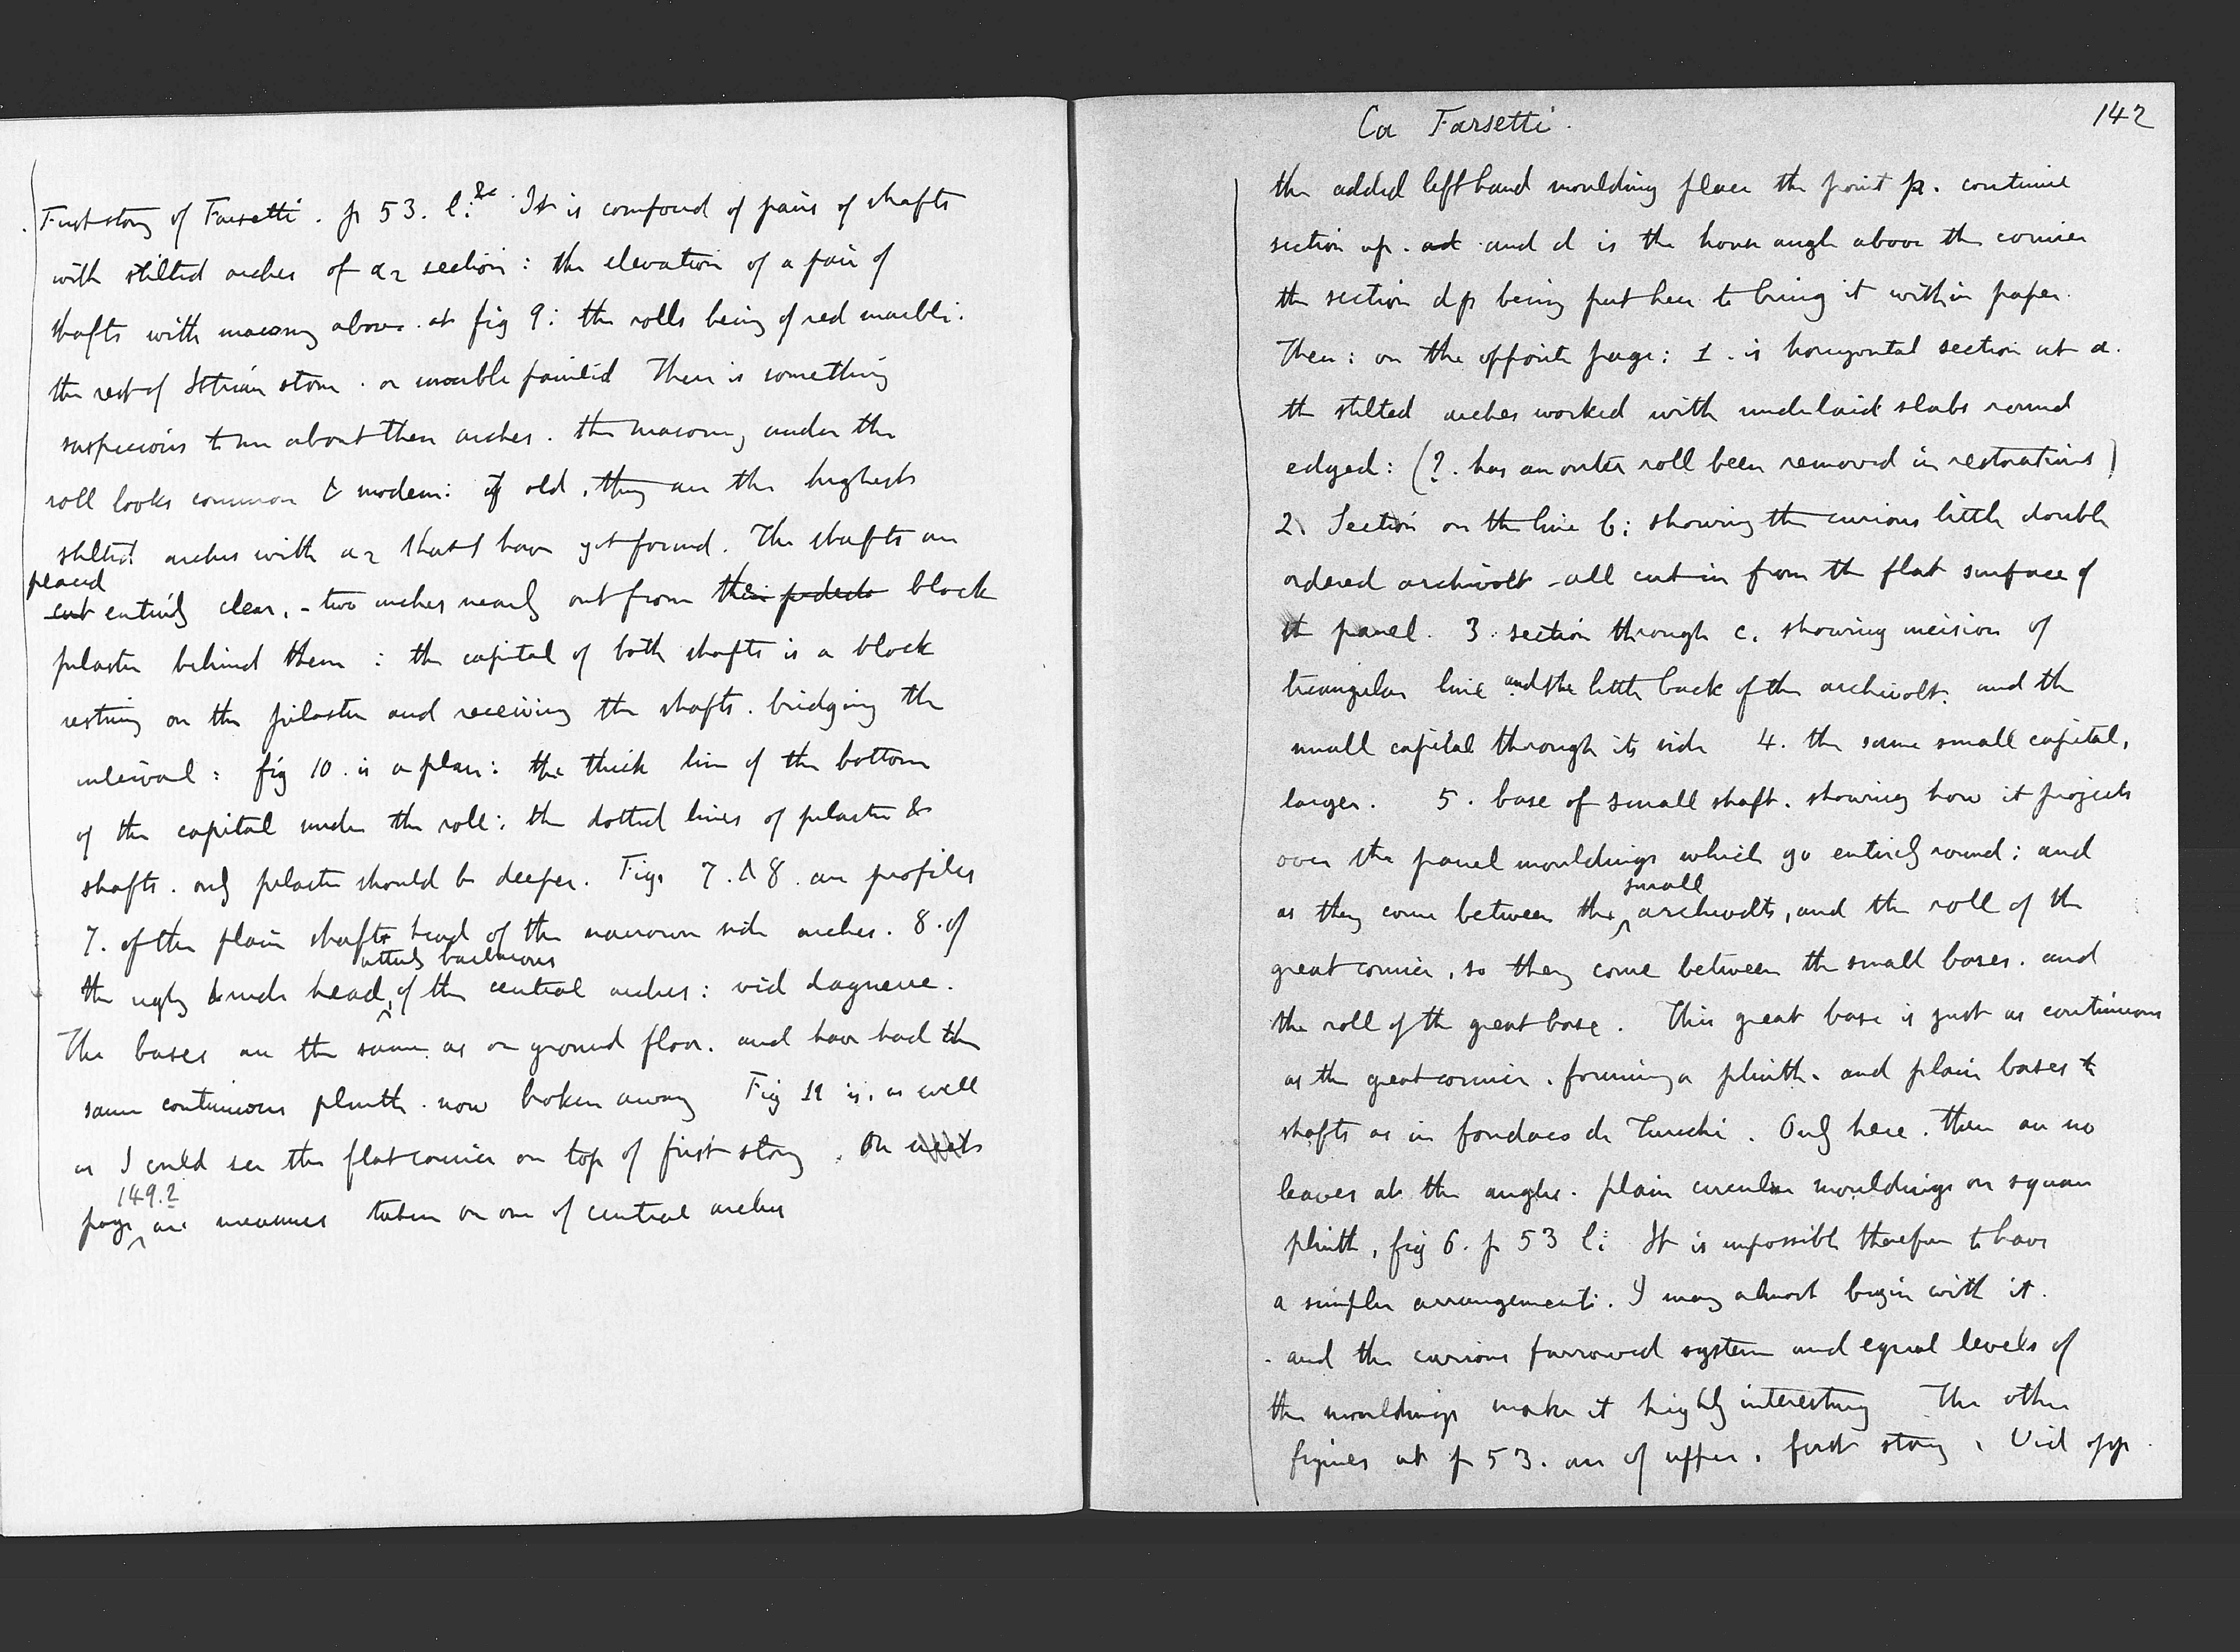 First story of Farsetti. p 53. l: &c It is composed of pairs of shafts
with stilted arches of a2 section: the elevation of a pair of
shafts with masonry above. at fig 9: the rolls being of red marble:
the rest of Istrian stone. or marble painted There is something
suspicious to me about these arches. the masonry under the
roll looks common & modern: if old, they are the highest
stilted arches with a2 that I have yet found. The shafts are
placed
cut entirely clear, - two inches nearly out from their pedests block
pilaster behind them: the capital of both shafts is a block
resting on the pilaster and receiving the shafts. bridging the
interval: fig 10. is a plan: the thick line of the bottom
of the capital under the roll: the dotted lines of pilaster &
shafts. only pilaster should be deeper. Figs 7. & 8. are profiles
7. of the plain shaft head of the narrow side arches. 8. of
utterly barbarous
the ugly & rude head, of the central arches: vid daguerre.
The bases are the same. as on ground floor. and have had the
same continuous plinth. now broken away Fig 11 is, as well
as I could see the flat cornice on top of first story. On
149.2
page are measures taken on one of central arches
Ca Farsetti.
142
the added left hand moulding place the point p. continue
section up. and d is the honor angle above the cornice
the section dp being put here to bring it within paper.
Then: on the opposite page: 1. is horizontal section at a.
the stilted arches worked with underlaid slabs round
edged: (?. has an outer roll been removed in restorations)
2. Section on the line b: showing the curious little double
ordered archivolt - all cut in from the flat surface of
the panel. 3. section through c. showing incision of
triangular line and the little back of the archivolt. and the
small capital through its side 4. the same small capital,
larger. 5. base of small shaft. showing how it projects
over the panel mouldings which go entirely round: and
small
as they come between the archivolts, and the roll of the
great cornice, so they come between the small bases. and
the roll of the great base. This great base is just as continuous
as the great cornice. forming a plinth. and plain bases to
shafts as in fondaco de Turchi. Only here. there are no
leaves at the angles. plain circular mouldings on square
plinth, fig 6. p 53 l: It is impossible therefore to have
a simpler arrangement. I may almost begin with it.
- and the curious furrowed system and equal levels of
the mouldings make it highly interesting The other
figures at p 53. are of upper. first story. Vid opp.